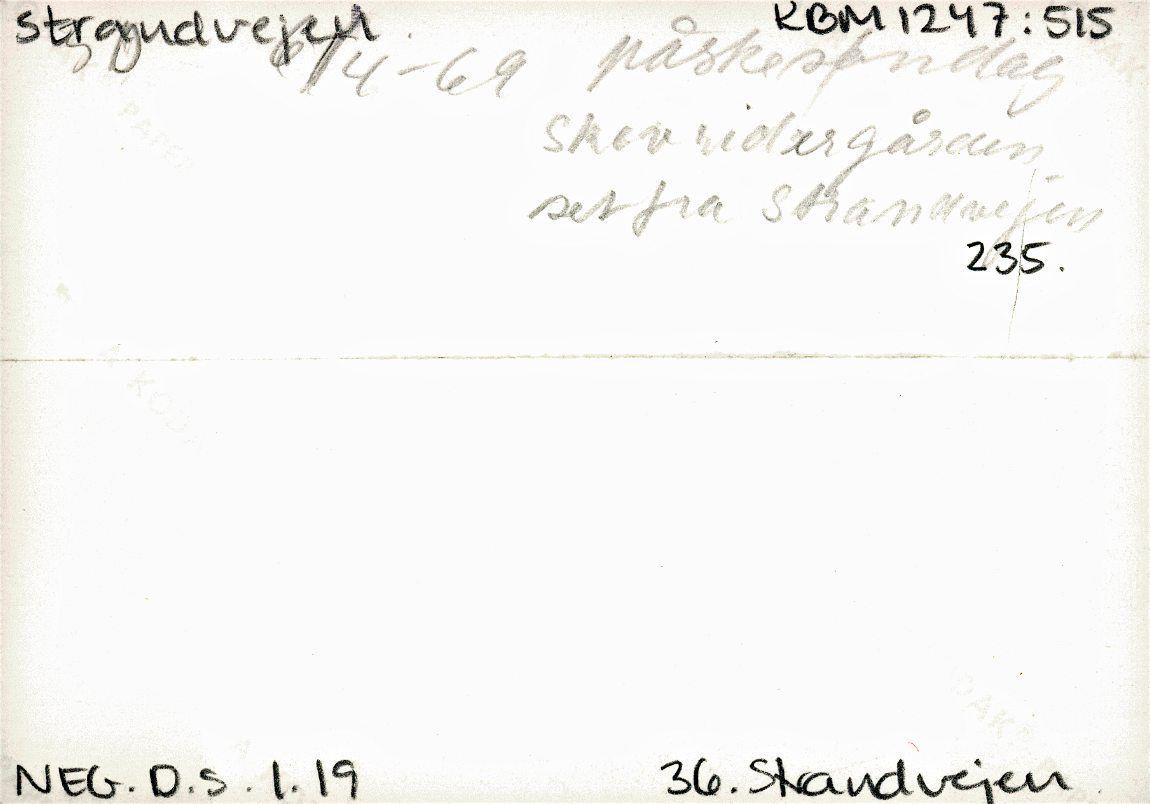 Strandvejen. KBM 1247:515
6/4-69 påskesøndag
Skovridergården
set fra Strandvejen
235.
NEG. D.S. 1.19 36. Strandvejen